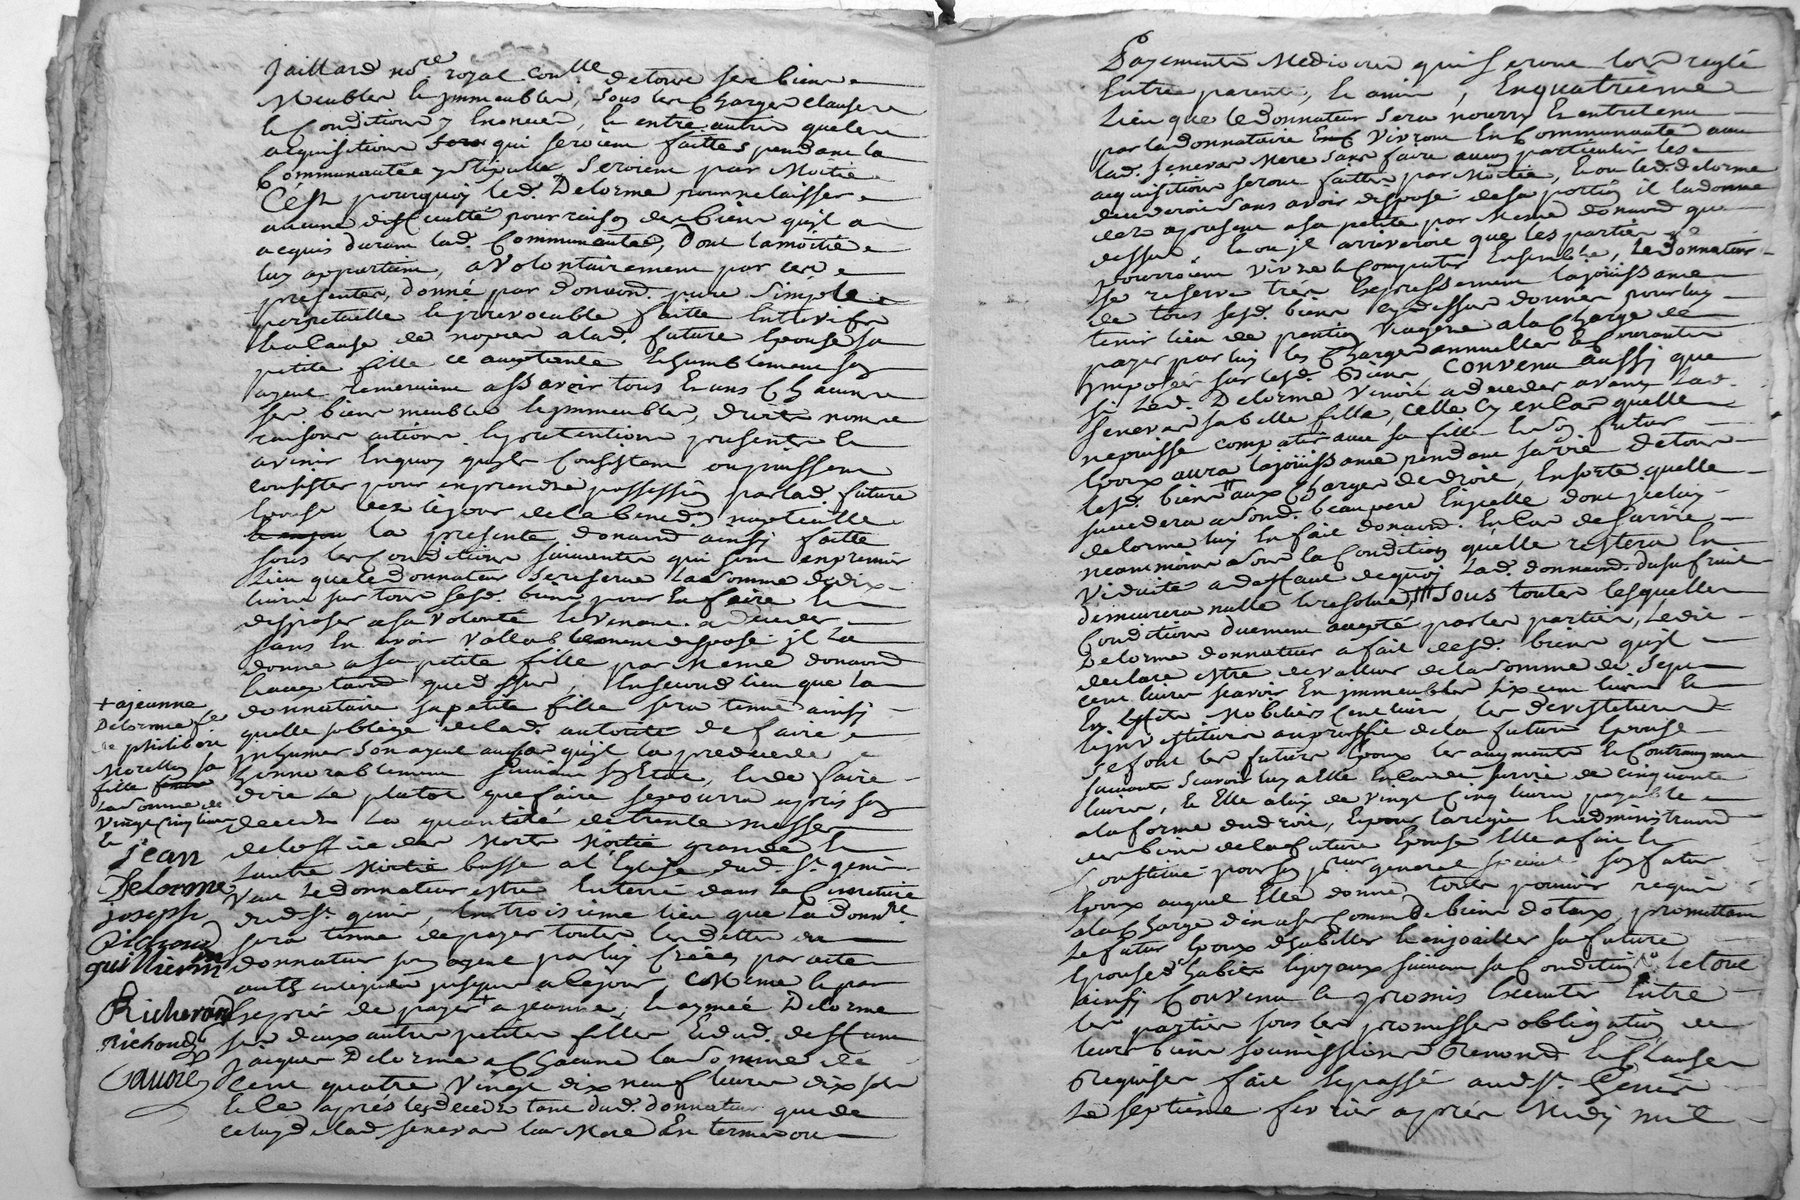 Jaillard no.re royal con.lle de tous ses biens
Meubles et jmmeubles, sous les Charges clauses
et Conditions y Enoncés, et entre autres que les
acquisitions qui seroient faittes pendant la
Communautée y stipulée, seroient par Moitié
C'est pourquoy led. Delorme pour ne laisser
aucune difficulté pour raison des biens qu'il a
acquis durant lad. Communautée, dont la moitié
luy appartient, a volontairement par ces
presentes, donné par donaôn pure simple
perpetuelle et jrrevocable faitte Entre vifs
Et a Cause de nopces a lad. future Epouse sa
petite fille ce acceptante Et humblement son
ayeul remerciant assavoir tous Et uns Chacuns
ses biens meubles et jmmeubles, droits noms
raisons actions et pretentions presents et
avenir En quoy qu'ils Consistent ou puissent
consister pour en prendre possession par lad. future
Epouse dez le jour de la bened.on nuptialle
la presente donaôn ainsy faitte
sous les Conditions suivantes qui sont en premier
Lieu que le donnateur se reserve la somme de dix
livres sur tous sesd. biens pour En faire Et
disposer a sa volonté Et venant a deceder
sans En avoir vallablement disposé jl La
donne a sa petite fille par Meme donaôn
que dessus, En second lieu que la
donnataire sa petite fille sera tenue ainsy
quelle s'oblige de lad. autorité de faire
jnhumer son ayeul au cas qu'il la predecede
honnorablement suivant son Etat, Et de faire
dire Le plutot que faire se pourra après son
decedz La quantité de trente messes
de l'office des Morts Moitié grandes Et
l'autre Moitié basses a l'Eglise dud. St. genis
Veut Le donnateur estre Enterré dans Le Cimetiere
dud. St. genis, En troisieme lieu que La donn.re
sera tenue de payer touttes les dettes du
donnateur son ayeul par luy Créés par actes
authentiques jusques a ce jour, Comme et par
Exprès de payer + a jeanne, Et aymée Delorme
ses deux autres petites filles Et dud. deffunt
jacques Delorme a Chacune la Somme de
Cent quatre Vingt dix neuf livres dix sols
Et Ce après les decedz tant dud. donnateur que de
celuy de lad. Senevas leur Mere En termes ou
+ a jeanne
Delorme fe
de philibert
Morellon sa
fille
la somme de
Vingt Cinq livres
Et
jean
Delorme
joseph
guillermin
Richerond
Richond
Payements Mediocres qui seront lors reglé
Entre parents, Et amis, En quatrieme
Lieu que le donnateur sera nourry Et entretenu
par la donnataire Vivront En Communauté avec
lad. Senevas Mere sans faire aucun particulier les
acquisitions seront faittes par Moitié, Et ou led. Delorme
decederoit sans avoir disposé de sa portion il la donne
dez apresent a sa petite par Meme donaôn que
dessus, Et ou jl arriveroit que les parties ne
pourroient vivre et Compatir Ensemble, Le donnateur
Se reserve très Expressement la joüissance
de tous sesd. biens cy dessus donnés pour luy
tenir lieu de pention Viagere a la Charge de
payer par luy les Charges annuelles Et Courantes
jmposés sur lesd. Biens Convenu Aussy que
si Led. Delorme Venoit a deceder avant Lad.
Senevas sa belle fille, celle Cy en Cas quelle
ne puisse compatir avec sa fille Et son futur
Epoux aura la joüissance pendant sa vie de tous
lesd. biens aux Charges de droit, En sorte quelle
succedera a Sond. beau pere En jcelle dont jceluy
delorme luy En fait donaôn En Cas de survie
neantmoins a Sous la Condition quelle restera En
Viduité a deffaut de quoy Lad. donnaôn d'usufruit
demeurera nulle Et resolue, Sous touttes lesquelles
Conditions duement accepté par les parties, Ledit
Delorme donnateur a fait desd. biens qu'il
declare estre de valleur de la somme de Sept
cent livres scavoir En jmmeubles six cent livres Et
En Effets Mobiliers Cent livres, les devestitures
Et jnvestitures au proffit de la future Epouse
se font les futurs Epoux les augments Et Contreaugment
suivants Scavoir luy a Elle En Cas de survie de cinquante
livres, Et Elle a luy de Vingt Cinq livres payable
a la forme du droit, Et pour la regie Et administraôn
des biens de la future Epouse Elle a fait Et
Constitué pour son p.reur general special son futur
Epoux auquel Elle donne touts pouvoirs requis
a la Charge d'en user Comme de biens dotaux, promettant
Le futur Epoux d'habiller Et enjoailler sa future
Epouse d'habits Et joyaux suivant sa Condition Le tout
ainsy Convenu Et promis Executer Entre
les parties sous les promesses obligation de
leurs biens soumissions Renonc.d Et Clauses
Requises fait Et passé aud. St. Genis
Le septieme fevrier après Midy mil